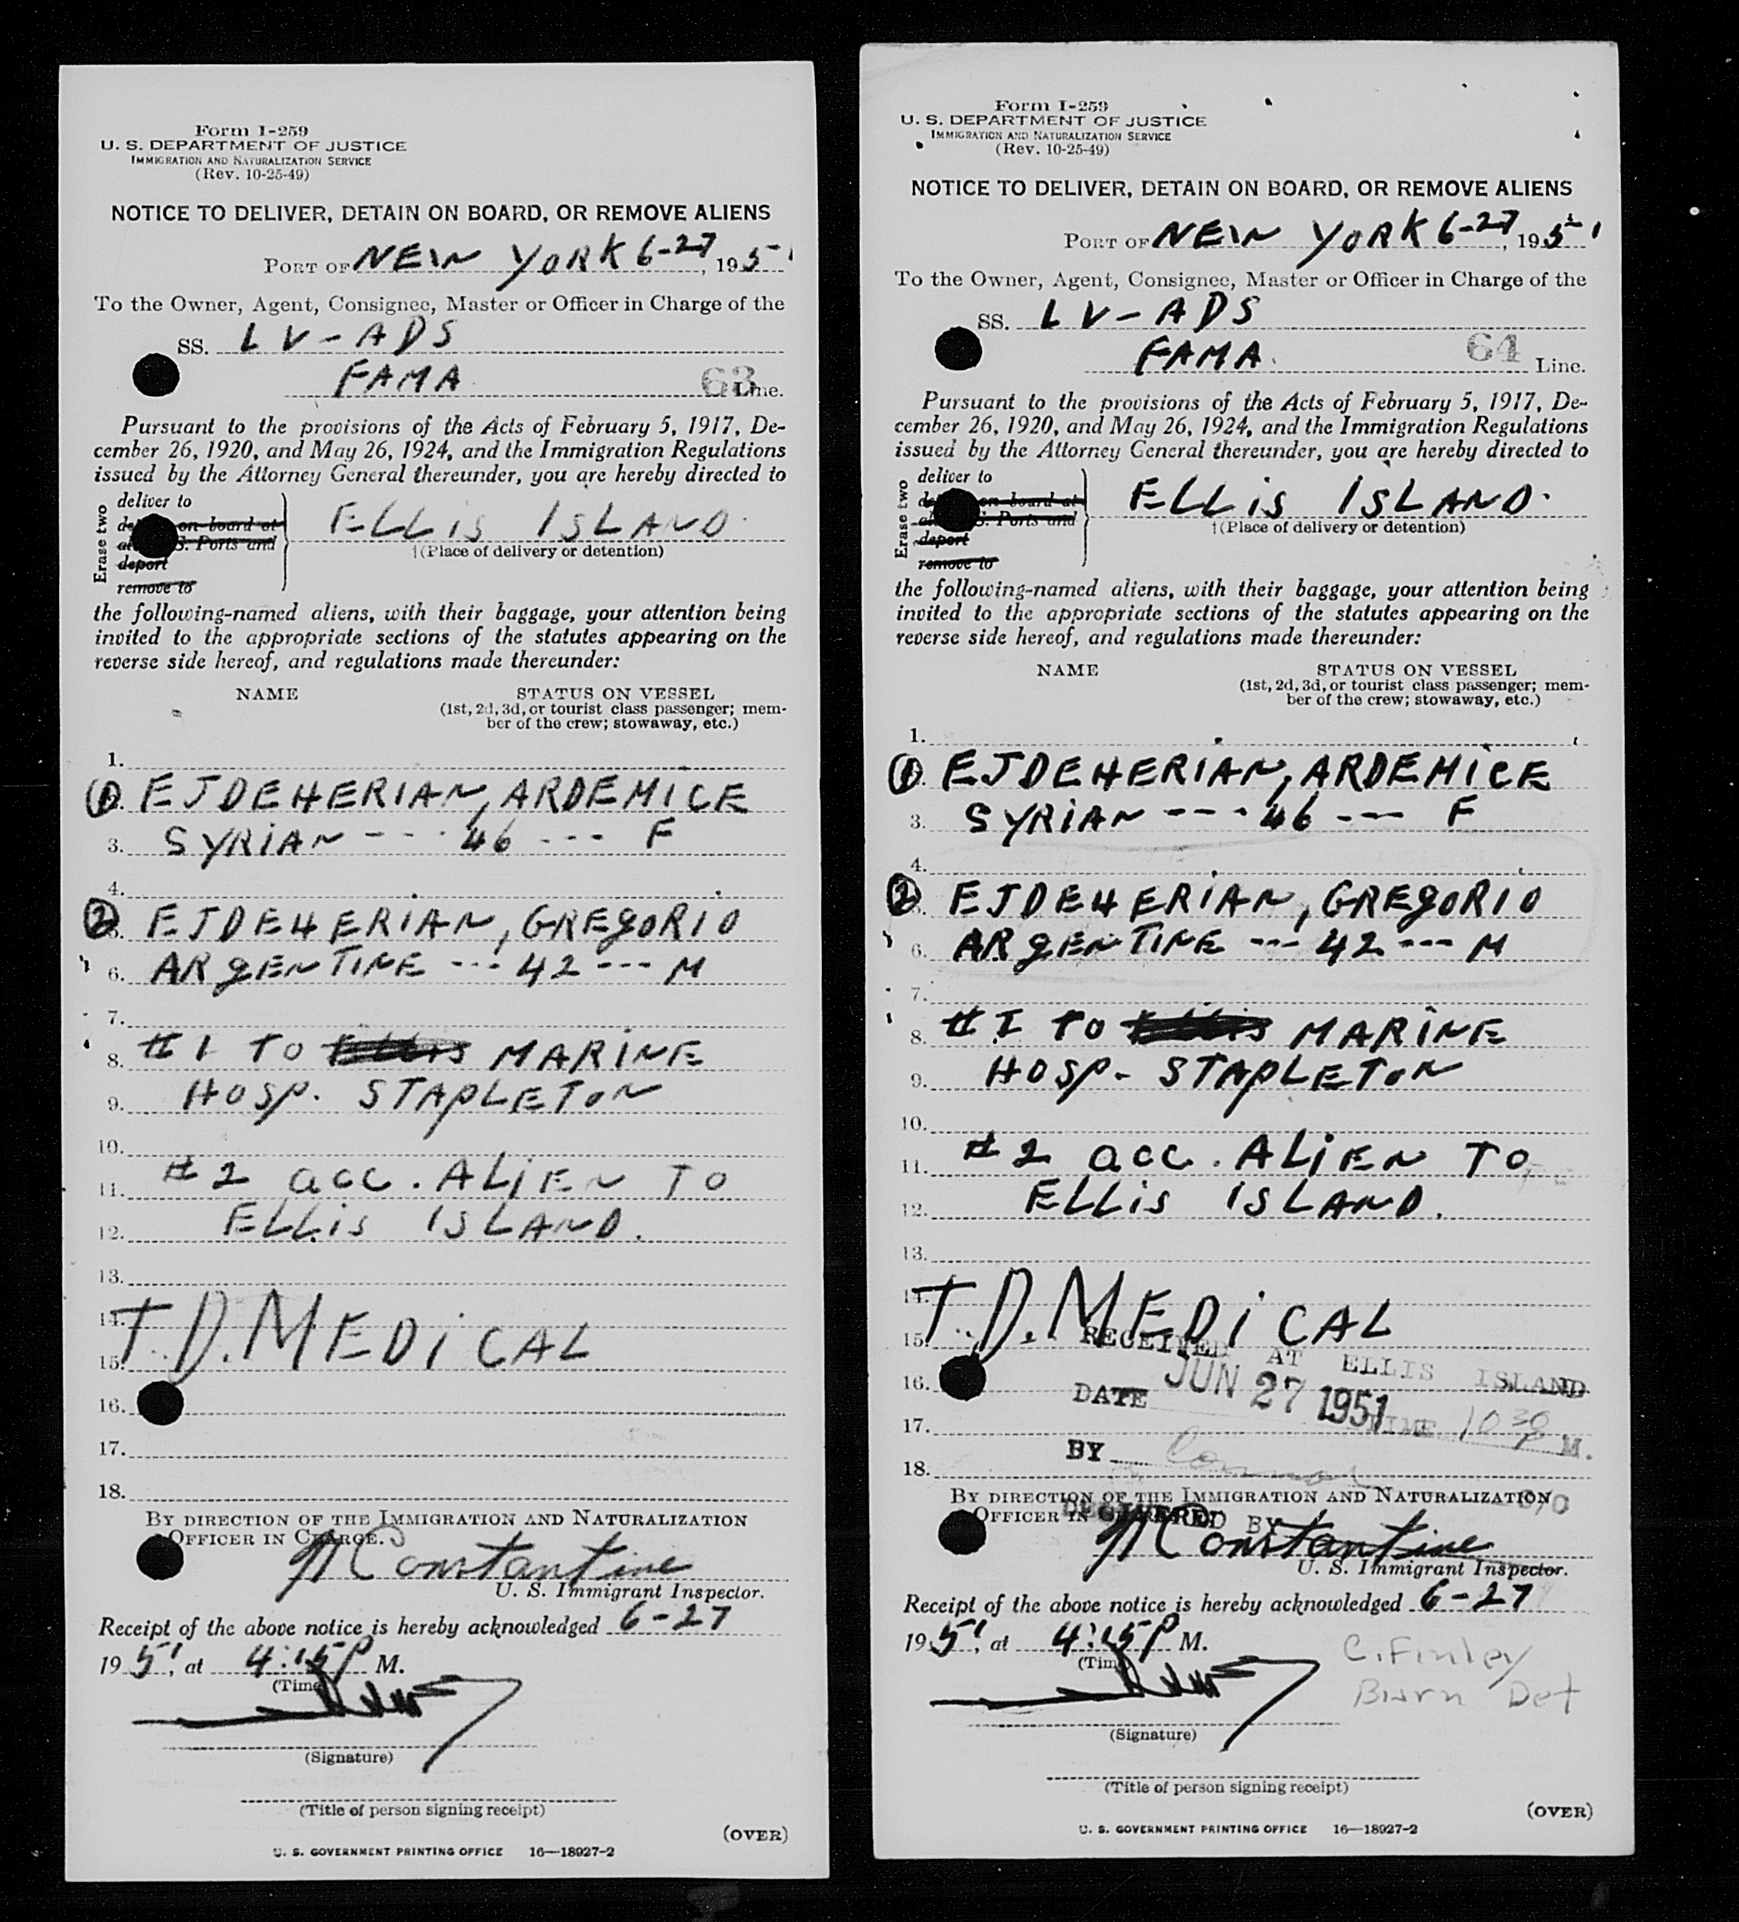 Form I-259
U. S. DEPARTMENT OF JUSTICE
IMMIGRATION AND NATURALIZATION SERVICE
(Rev. 10-25-49)
NOTICE TO DELIVER, DETAIN ON BOARD, OR REMOVE ALIENS
PORT OF NEW YORK 6-27, 1951
To the Owner, Agent, Consignee, Master or Officer in Charge of the
SS. LV-ADS
FAMA 63 Line.
Pursuant to the provisions of the Acts of February 5, 1917, De-
cember 26, 1920, and May 26, 1924, and the Immigration Regulations
issued by the Attorney General thereunder, you are hereby directed to
Erase two
deliver to
on board at
S. Ports and
deport
remove to
ELLIS ISLAND.
†(Place of delivery or detention)
the following-named aliens, with their baggage, your attention being
invited to the appropriate sections of the statutes appearing on the
reverse side hereof, and regulations made thereunder:
NAME STATUS ON VESSEL
(1st, 2d, 3d, or tourist class passenger; mem-
ber of the crew; stowaway, etc.)
1.
① EJDEHERIAN, ARDEMICE
3. SYRIAN --- 46 --- F
4.
② EJDEHERIAN, GREGORIO
6. ARGENTINE --- 42 --- M
7.
8. #1 TO Ellis MARINE
9. HOSP. STAPLETON
10.
11. #2 acc. ALIEN TO
12. ELLIS ISLAND.
13.
14. T.D. MEDICAL
15.
16.
17.
18.
BY DIRECTION OF THE IMMIGRATION AND NATURALIZATION
OFFICER IN CHARGE.
M Constantine
U. S. Immigrant Inspector.
Receipt of the above notice is hereby acknowledged 6-27
1951, at 4:15 P M.
(Time)
(Signature)
(Title of person signing receipt)
(OVER)
U. S. GOVERNMENT PRINTING OFFICE 16—18927-2
Form I-259
U. S. DEPARTMENT OF JUSTICE
IMMIGRATION AND NATURALIZATION SERVICE
(Rev. 10-25-49)
NOTICE TO DELIVER, DETAIN ON BOARD, OR REMOVE ALIENS
PORT OF NEW YORK 6-27, 1951
To the Owner, Agent, Consignee, Master or Officer in Charge of the
SS. LV-ADS
FAMA. 64 Line.
Pursuant to the provisions of the Acts of February 5, 1917, De-
cember 26, 1920, and May 26, 1924, and the Immigration Regulations
issued by the Attorney General thereunder, you are hereby directed to
Erase two
deliver to
on board at
S. Ports and
deport
remove to
ELLIS ISLAND.
†(Place of delivery or detention)
the following-named aliens, with their baggage, your attention being
invited to the appropriate sections of the statutes appearing on the
reverse side hereof, and regulations made thereunder:
NAME STATUS ON VESSEL
(1st, 2d, 3d, or tourist class passenger; mem-
ber of the crew; stowaway, etc.)
1.
① EJDEHERIAN, ARDEMICE
3. SYRIAN --- 46 --- F
4.
② EJDEHERIAN, GREGORIO
6. ARGENTINE --- 42 --- M
7.
8. #I TO Ellis MARINE
9. HOSP- STAPLETON
10.
11. #2 acc. ALIEN TO
12. ELLIS ISLAND.
13.
14. T.D. MEDICAL
15. RECEIVED AT ELLIS ISLAND
16. DATE JUN 27 1951 TIME 10 30 P M.
17.
BY
18.
BY DIRECTION OF THE IMMIGRATION AND NATURALIZATION
OFFICER IN
BY
M Constantine
U. S. Immigrant Inspector.
Receipt of the above notice is hereby acknowledged 6-27
1951, at 4:15 P M.
(Time)
C. Finley
Det
(Signature)
(Title of person signing receipt)
(OVER)
U. S. GOVERNMENT PRINTING OFFICE 16—18927-2